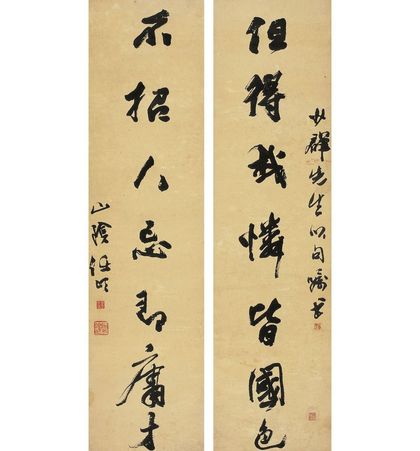 但得我憐皆國色
先生以句囑書
不招人忌即庸才
山陰任